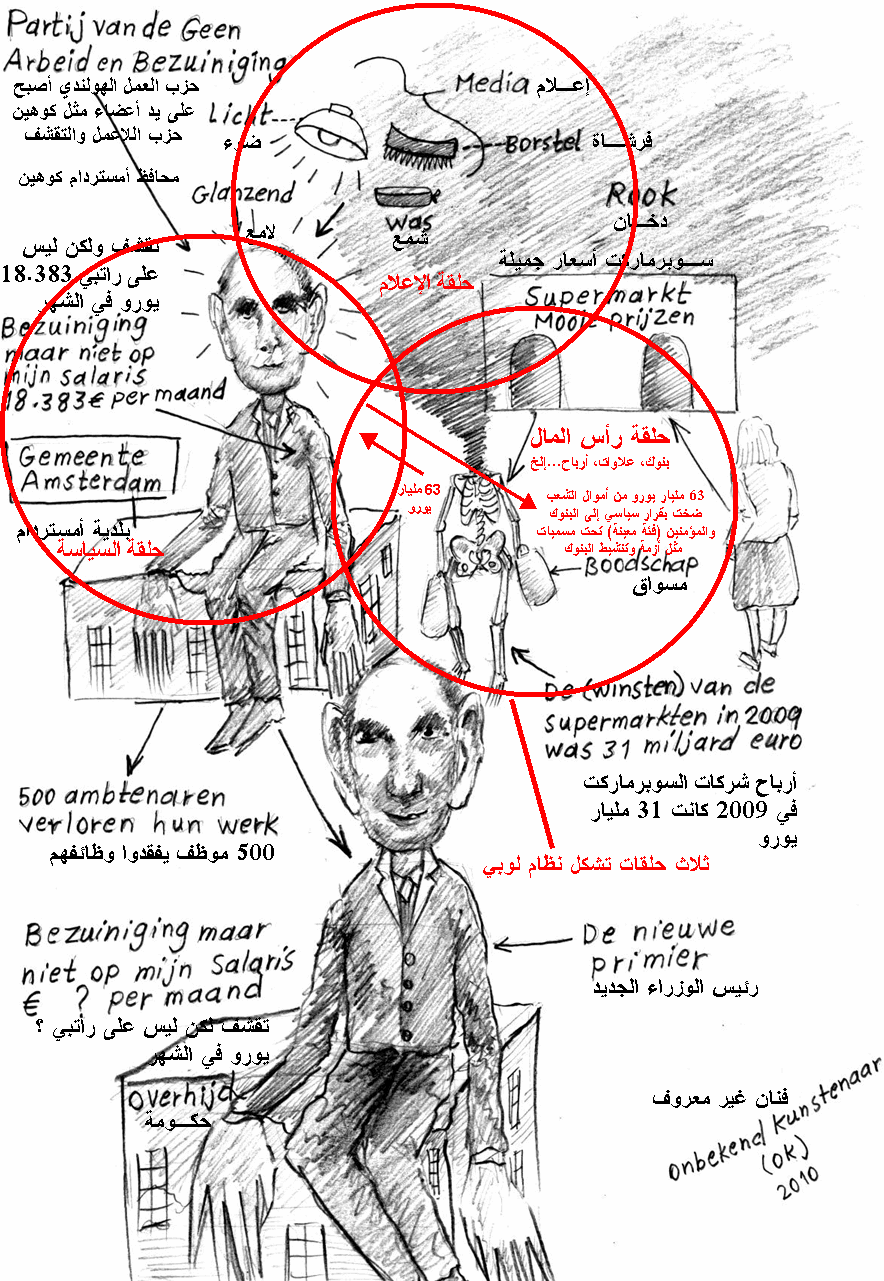 Partij van de Geen
Arbeid en Bezuiniging
حزب العمل الهولندي أصبح
على يد أعضاء مثل كوهين
حزب اللاعمل والتقشف
محافظ أمستردام كوهين
Media إعـــلام
Licht
ضوء
Borstel فرشـــاة
Glanzend
لامع
was
شمع
Rook
دخـــان
حلقة الإعلام
ســـوبرماركت أسعار جميلة
Supermarkt
Mooie prijzen
تقشف ولكن ليس
على راتبي 18.383
يورو في الشهر
Bezuiniging
maar niet op
mijn salaris
18.383€ per maand
Gemeente
Amsterdam
بلدية أمستردام
حلقة السياسة
حلقة رأس المال
بنوك، علاوات، أرباح...إلخ
63 مليار يورو من أموال الشعب
ضخت بقرار سياسي إلى البنوك
والمؤمنين (فئة معينة) تحت مسميات
مثل أزمة وتنشيط البنوك
63 مليار
يورو
Boodschap
مسواق
De (winsten) van de
supermarkten in 2009
was 31 miljard euro
أرباح شركات السوبرماركت
في 2009 كانت 31 مليار
يورو
ثلاث حلقات تشكل نظام لوبي
500 ambtenaren
verloren hun werk
500 موظف يفقدوا وظائفهم
Bezuiniging maar
niet op mijn salaris
€ ? per maand
تقشف لكن ليس على راتبي ؟
يورو في الشهر
De nieuwe
primier
رئيس الوزراء الجديد
Overhijd
حكـــومة
فنان غير معروف
onbekend kunstenaar
(ok)
2010